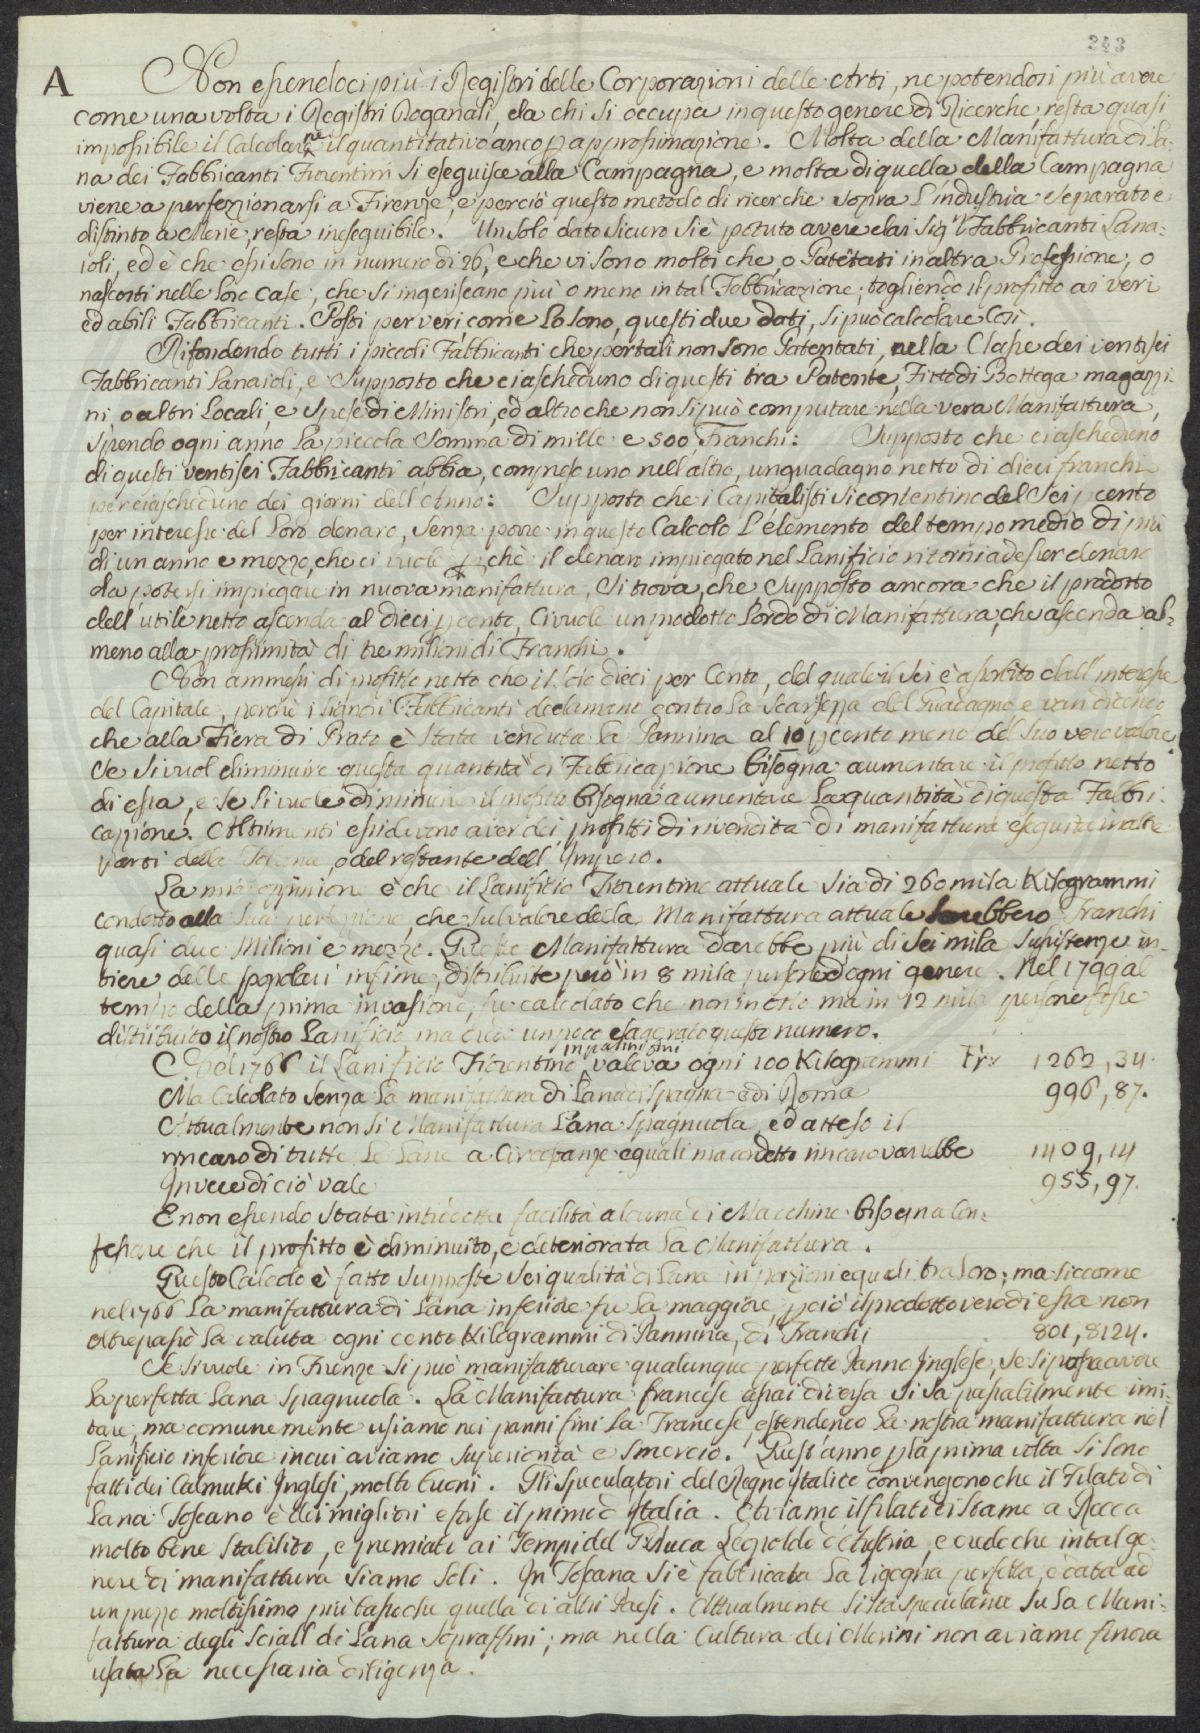 243
A Non essendoci più i Registri delle Corporazioni delle Arti, ne potendosi più avere
come una volta i Registri Doganali, da chi si occupa in questo genere di Ricerche, resta quasi
impossibile il Calcolarne il quantitativo anco p approssimazione. Molta della Manifattura di La
na dei Fabbricanti Fiorentini si eseguisce alla Campagna, e molta di quella della Campagna
viene a perfezzionarsi a Firenze, e perciò questo metodo di ricerche sopra L'industria separato e
distinto a Merie, resta ineseguibile. Un solo dato sicuro si è potuto avere dai Sig.ri Fabbricanti Lana:
ioli, ed è che essi sono in numero di 26, e che vi sono molti che, o Patetati in altra Professione, o
nascosti nelle loro Case, che si ingeriscano più o meno in tal Fabbricazione; togliendo il profitto ai veri
ed abili Fabbricanti. Posti per veri, come Lo sono, questi due dati, si può calcolare Così.
Rifondendo tutti i piccoli Fabbricanti che per tali non sono Patentati, nella Classe dei ventisei
Fabbricanti Lanaioli, e supposto che ciascheduno di questi tra Patente, Fitto di Bottega magazzi
ni, o altri Locali, e spese di Ministri, ed altro che non si può computare nella vera Manifattura,
spenda ogni anno La piccola Somma di mille e 500 Franchi: Supposto che ciascheduno
di questi ventisei Fabbricanti abbia, compreso uno nell'altro, un guadagno netto di dieci franchi
per ciascheduno dei giorni dell'Anno: Supposto che i Capitalisti si contentino del Sei p cento
per interesse del Loro denaro, senza porre in questo Calcolo L'elemento del tempo medio di più
di un anno e mezzo, che ci vuole p chè il denaro impiegato nel Lanificio ritorni ad esser denaro
da potersi impiegare in nuova manifattura, Si trova, che, supposto ancora che il prodotto
dell'utile netto ascenda al dieci p cento, Ci vuole un prodotto Lordo di Manifattura, che ascenda al-
meno alla prossimità di tre milioni di Franchi.
Non ammessi di profitto netto che il solo dieci per Cento, del quale il Sei è assorbito dall'interesse
del Capitale, perchè i Signori Fabbricanti declamano contro La Scarsezza del Guadagno e van dicendo
che alla Fiera di Prato è stata venduta La Pannina al 10 p cento meno del suo vero valore.
Se si vuol diminuire questa quantità di Fabbricazione bisogna aumentare il profitto netto
di essa, e se si vuole diminuire il profitto bisogna aumentare La quantità di questa Fabbri-
cazzione. Altrimenti essi devono aver dei profitti di rivendita di manifattura eseguita in altre
parti della Toscana, o del restante dell'Impero.
La mia opinione è che il Lanificio Fiorentino attuale sia di 260 mila Kilogrammi
condotto alla sua perfezione, che sul valore della Manifattura attuale Sarebbero Franchi
quasi due Milioni e mezzo. Questa Manifattura darebbe più di Sei mila Sussistenze in-
tiere delle popolari infime, distribuite però in 8 mila persone d'ogni genere. Nel 1799 al
tempo della prima invasione, fu calcolato che non in otto ma in 12 mila persone fosse
distribuito il nostro Lanificio ma credo un poco esagerato questo numero.
Nel 1766 il Lanificio Fiorentino in panni fini valeva ogni 100 Kilogrammi Fr: 1262,34.
Ma Calcolato senza La manifattura di Lana di Spagna e di Roma 996,87.
Attualmente non si Manifattura Lana Spagnuola, ed atteso il
rincaro di tutte Le Lane a Circostanze eguali ma condetto rincaro varrebbe 1409,14
Invece di ciò vale 955,97.
E non essendo stata introdotta facilità alcuna di Macchine bisogna Con-
fessare che il profitto è diminuito, e deteriorata La Manifattura.
Questo Calcolo è fatto supposte sei qualità di Lana in porzioni eguali tra Loro; ma siccome
nel 1766 La manifattura di Lana inferiore fu La maggiore, p ciò il prodotto vero di essa non
oltrepassò La valuta ogni cento Kilogrammi di Pannina, di Franchi 801,8124.
Se si vuole in Firenze si può manifatturare qualunque perfetto Panno Inglese, se si possa avere
La perfetta Lana Spagnuola. La Manifattura francese assai diversa si sa passabilmente imi-
tare, ma comunemente usiamo nei panni fini La Francese, estendendo La nostra manifattura nel
Lanificio inferiore in cui aviamo superiorità e smercio. Quest'anno p la prima volta si sono
fatti dei Calmuki Inglesi, molto buoni. Gli speculatori del Regno Italico convengono che il Filato di
Lana Toscano è dei migliori e forse il primo d'Italia. Abbiamo il filato di stame a Rocca
molto bene stabilito, e premiato ai Tempi del GDuca Leopoldo d'Austria, e credo che in tal ge-
nere di manifattura siamo Soli. In Toscana si è fabbricata La Vigogna perfetta, e data ad
un prezzo moltissimo più basso che quella di altri Paesi. Attualmente si sta speculando su La Mani-
fattura degli Sciall di Lana Sopraffini; ma nella Cultura dei Merini non aviamo finora
usata La necessaria diligenza.